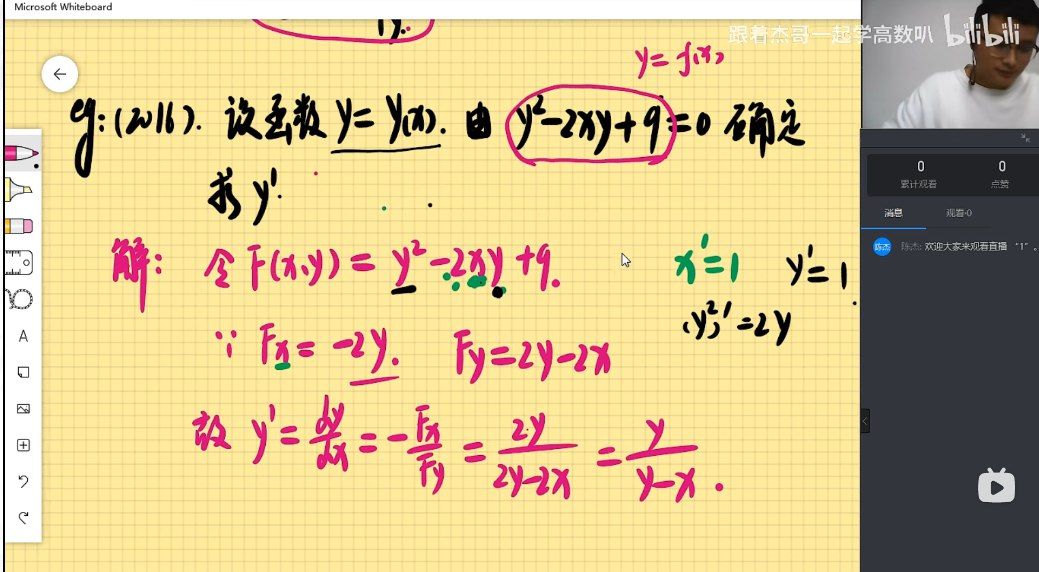 Microsoft Whiteboard
跟着杰哥一起学高数叭 bilibili
y = f(x)
eg: (2016). 设函数 y = y(x). 由 y² - 2xy + 9 = 0 确定
求 y'.
解: 令 F(x,y) = y² - 2xy + 9.
x' = 1 y' = 1
(y²)' = 2y
∵ Fx = -2y. Fy = 2y - 2x
故 y' = dy/dx = - Fx/Fy = 2y/(2y-2x) = y/(y-x).
0 0
累计观看 点赞
消息 观看·0
陈杰 陈杰: 欢迎大家来观看直播 “1” 。
A